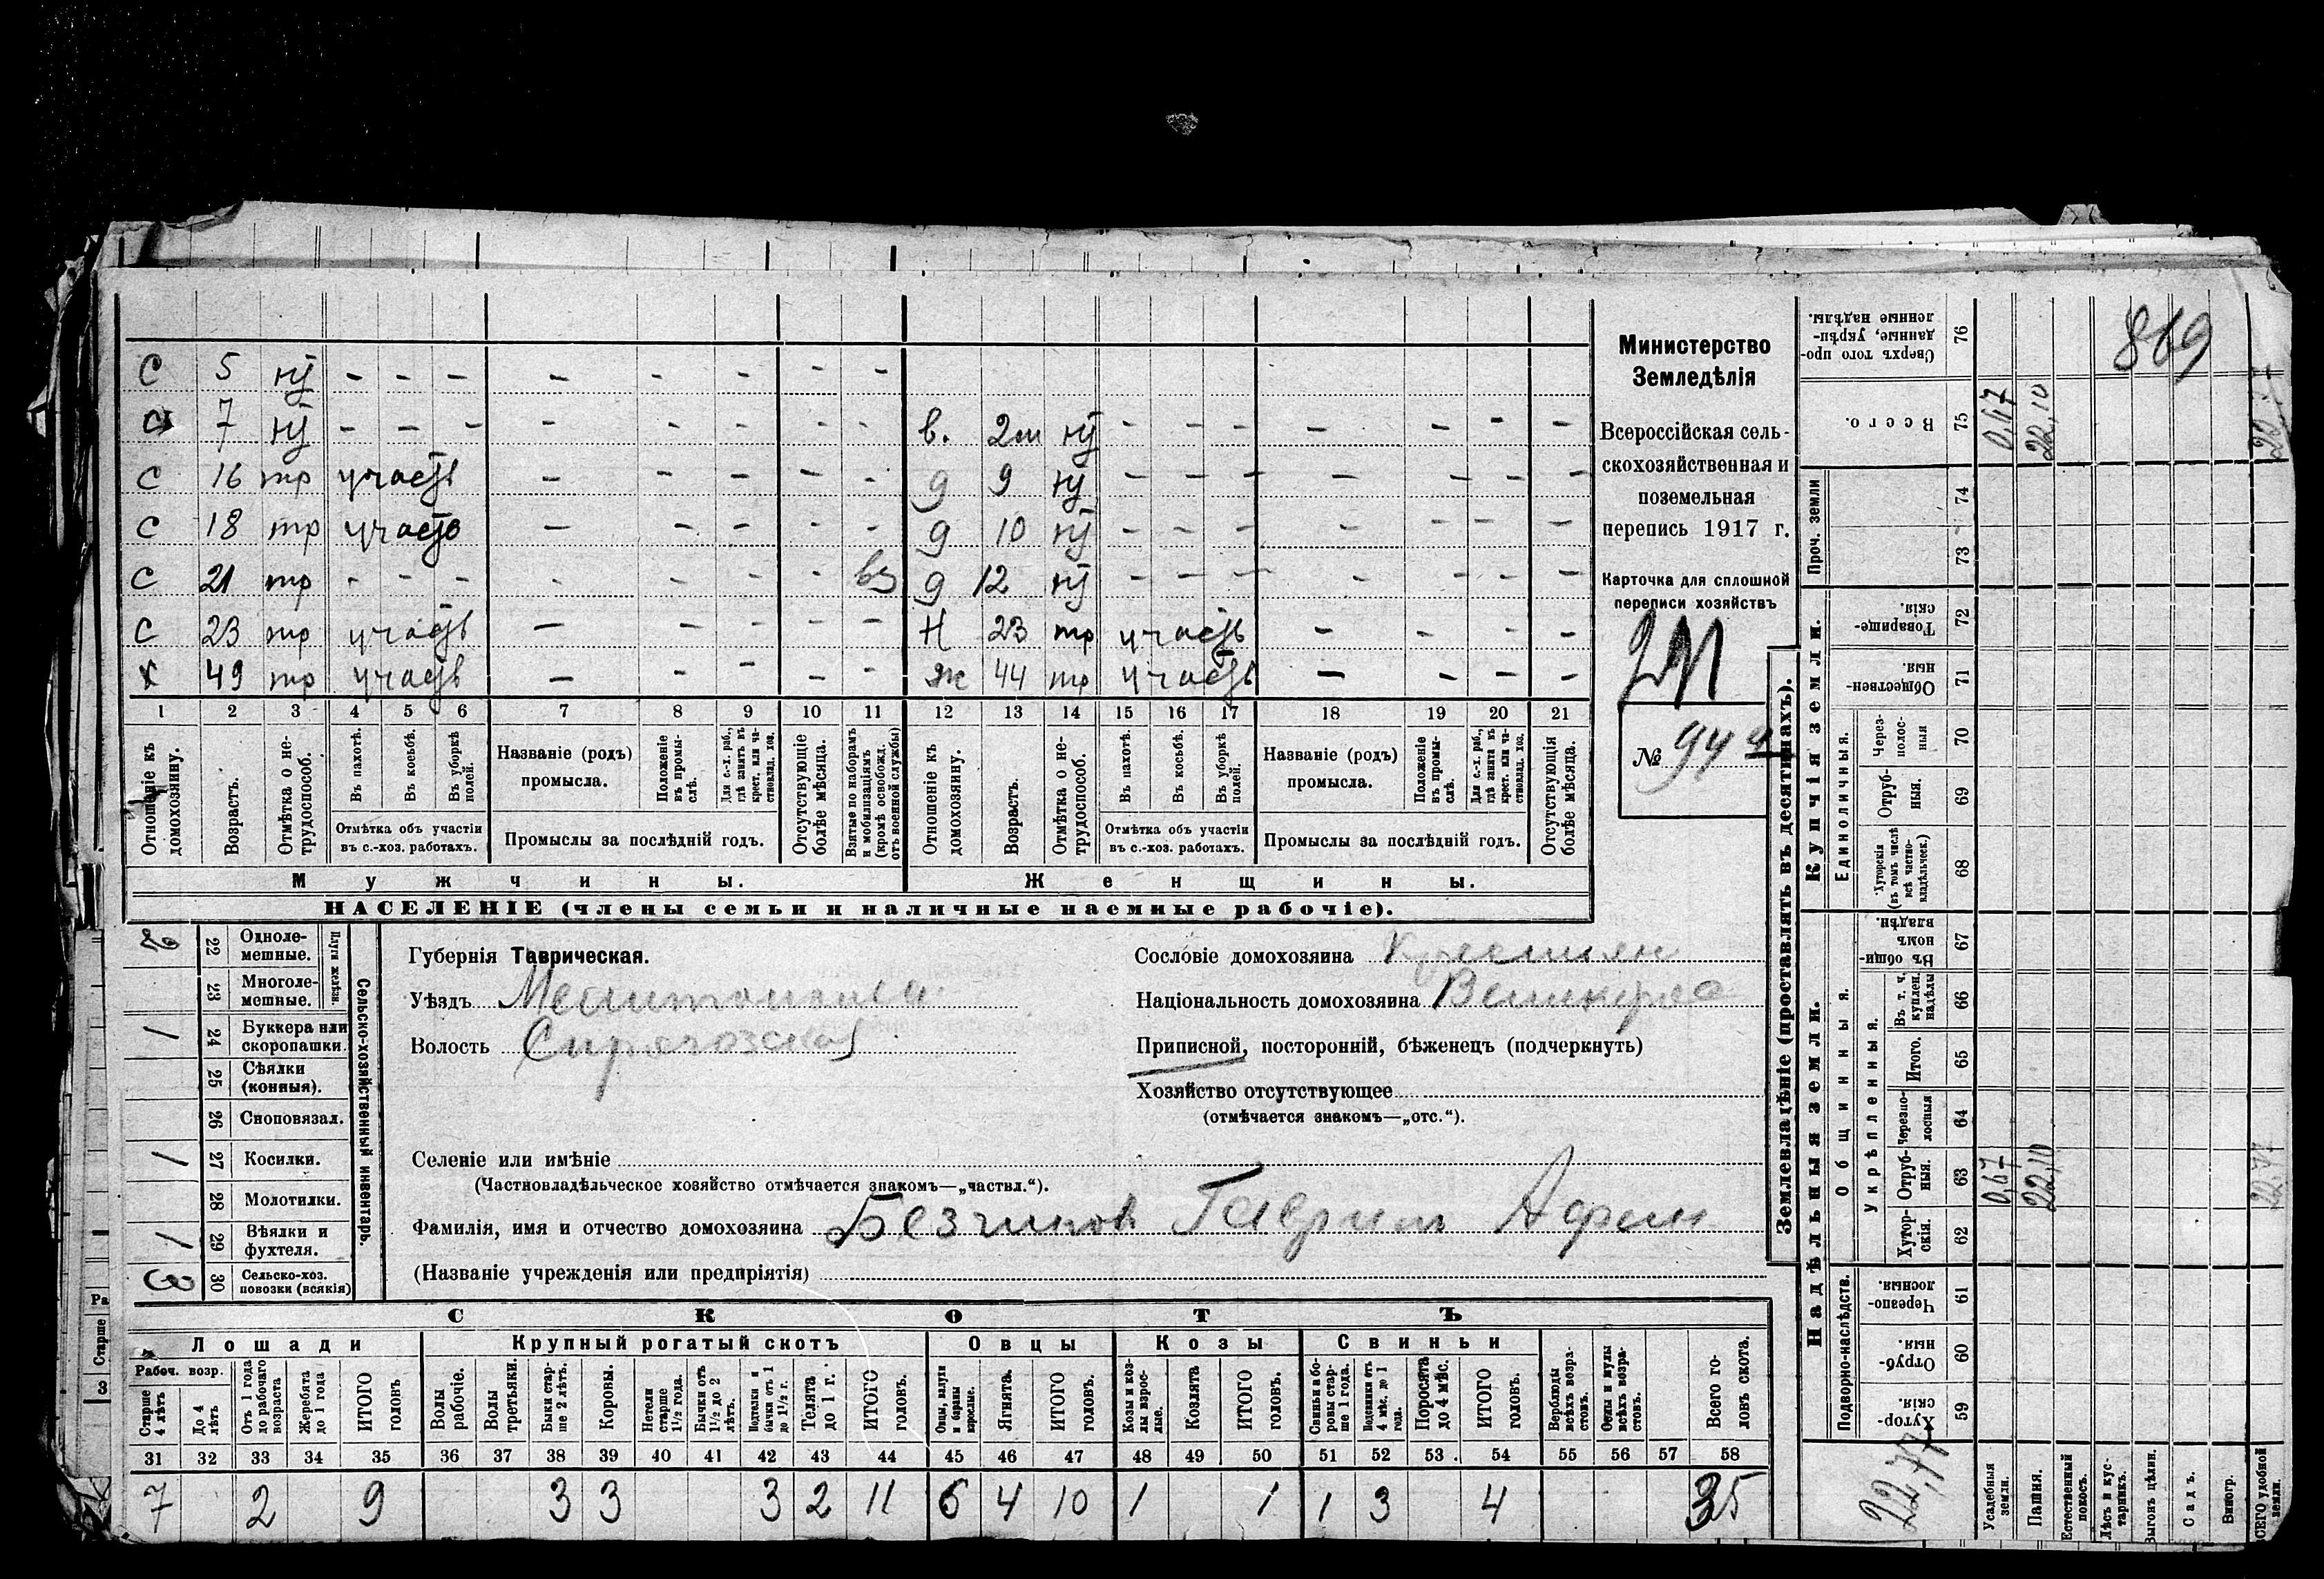 С 5 нй - - - - - - - -
С 7 нй - - - - - - - - в. 2м нй - - - - - - -
С 16 тр участв - - - - - д 9 нй - - - - - - -
С 18 тр участв - - - - - д 10 нй - - - - - - -
С 21 тр - - - - - - - вз д 12 нй - - - - - - -
С 23 тр участв - - - - - Н 23 тр участв - - - -
х 49 тр участв - - - - - ж 44 тр участв - - - -
1 2 3 4 5 6 7 8 9 10 11 12 13 14 15 16 17 18 19 20 21
Отношеніе къ домохозяину.
Возрастъ.
Отмѣтка о нетрудоспособ.
Въ пахотѣ.
Въ косьбѣ.
Въ уборкѣ полей.
Отмѣтка объ участіи въ с.-хоз. работахъ.
Названіе (родъ) промысла.
Положеніе въ промыслѣ.
Для с.-х. раб., гдѣ занятъ въ крест. или частновлад. хоз.
Промыслы за послѣдній годъ.
Отсутствующіе болѣе мѣсяца.
Взятые по наборамъ и мобилизаціямъ (кромѣ освобожд. отъ военной службы)
Отношеніе къ домохозяину.
Возрастъ.
Отмѣтка о нетрудоспособ.
Въ пахотѣ.
Въ косьбѣ.
Въ уборкѣ полей.
Отмѣтка объ участіи въ с.-хоз. работахъ.
Названіе (родъ) промысла.
Положеніе въ промыслѣ.
Для с.-х. раб., гдѣ занята въ крест. или частновлад. хоз.
Промыслы за послѣдній годъ.
Отсутствующія болѣе мѣсяца.
Мужчины.
Женщины.
НАСЕЛЕНІЕ (члены семьи и наличные наемные рабочіе).
Министерство
Земледѣлія
Всероссійская сель-
скохозяйственная и
поземельная
перепись 1917 г.
Карточка для сплошной
переписи хозяйствъ
№ 949
Сельско-хозяйственный инвентарь.
Плуги желѣзн.
22 Одноле-
мешные.
23 Многоле-
мешные.
1 24 Буккера или
скоропашки.
25 Сѣялки
(конныя).
26 Сноповязал.
1 27 Косилки.
28 Молотилки.
1 29 Вѣялки и
фухтеля.
3 30 Сельско-хоз.
повозки (всякія)
Губернія Таврическая.
Уѣздъ
Волость
Сословіе домохозяина
Національность домохозяина
Приписной, посторонній, бѣженецъ (подчеркнуть)
Хозяйство отсутствующее
(отмѣчается знакомъ—„отс.“).
Селеніе или имѣніе
(Частновладѣльческое хозяйство отмѣчается знакомъ—„частвл.“).
Фамилія, имя и отчество домохозяина Гаврил
(Названіе учрежденія или предпріятія)
СКОТЪ
Лошади
Крупный рогатый скотъ
Овцы
Козы
Свиньи
Рабоч. возр.
Старше 4 лѣтъ
До 4 лѣтъ
Отъ 1 года до рабочаго возраста
Жеребята до 1 года
ИТОГО головъ
Волы рабочіе.
Волы третьяки.
Быки старше 2 лѣтъ.
Коровы.
Нетели старше 1½ года.
Бычки отъ 1½ до 2 лѣтъ.
Подтелки и бычки отъ 1 до 1½ г.
Телята до 1 г.
ИТОГО головъ.
Овцы, валухи и бараны взрослые.
Ягнята.
ИТОГО головъ.
Козы и козлы взрослые.
Козлята
ИТОГО головъ.
Свиньи и боровы старше 1 года.
Подсвинки отъ 4 мѣс. до 1 года.
Поросята до 4 мѣс.
ИТОГО головъ.
Верблюды всѣхъ возрастовъ.
Ослы и мулы всѣхъ возрастовъ.
Всего головъ скота.
31 32 33 34 35 36 37 38 39 40 41 42 43 44 45 46 47 48 49 50 51 52 53 54 55 56 57 58
7 2 9 3 3 3 2 11 6 4 10 1 1 1 3 4 35
Землевладѣніе (проставлять въ десятинахъ).
Надѣльныя земли.
Купчія земли.
Проч. земли
Подворно-наслѣдств.
Общинныя.
Укрѣпленныя.
Единоличныя.
Сверхъ того проданные, укрѣпленные надѣлы. 76
Всего. 75 0,67 22,10
74
73
Товарищескія. 72
Общественныя. 71
Черезполосныя 70
Отрубныя. 69
Хуторскія (въ томъ числѣ всѣ частновладѣльческ.) 68
Въ общинномъ владѣн. 67
Въ т. ч. куплен. надѣлы 66
Итого. 65
Черезполосныя 64
Отрубныя. 63 0,67 22,10
Хуторскія. 62
Черезполосныя. 61
Отрубныя. 60
Хуторскія. 59
22,77
Усадебныя земли.
Пашня.
Естественный покосъ.
Лѣсъ и кустарникъ.
Выгонъ цѣлин.
Садъ.
Виногр.
ВСЕГО удобной земли.
869